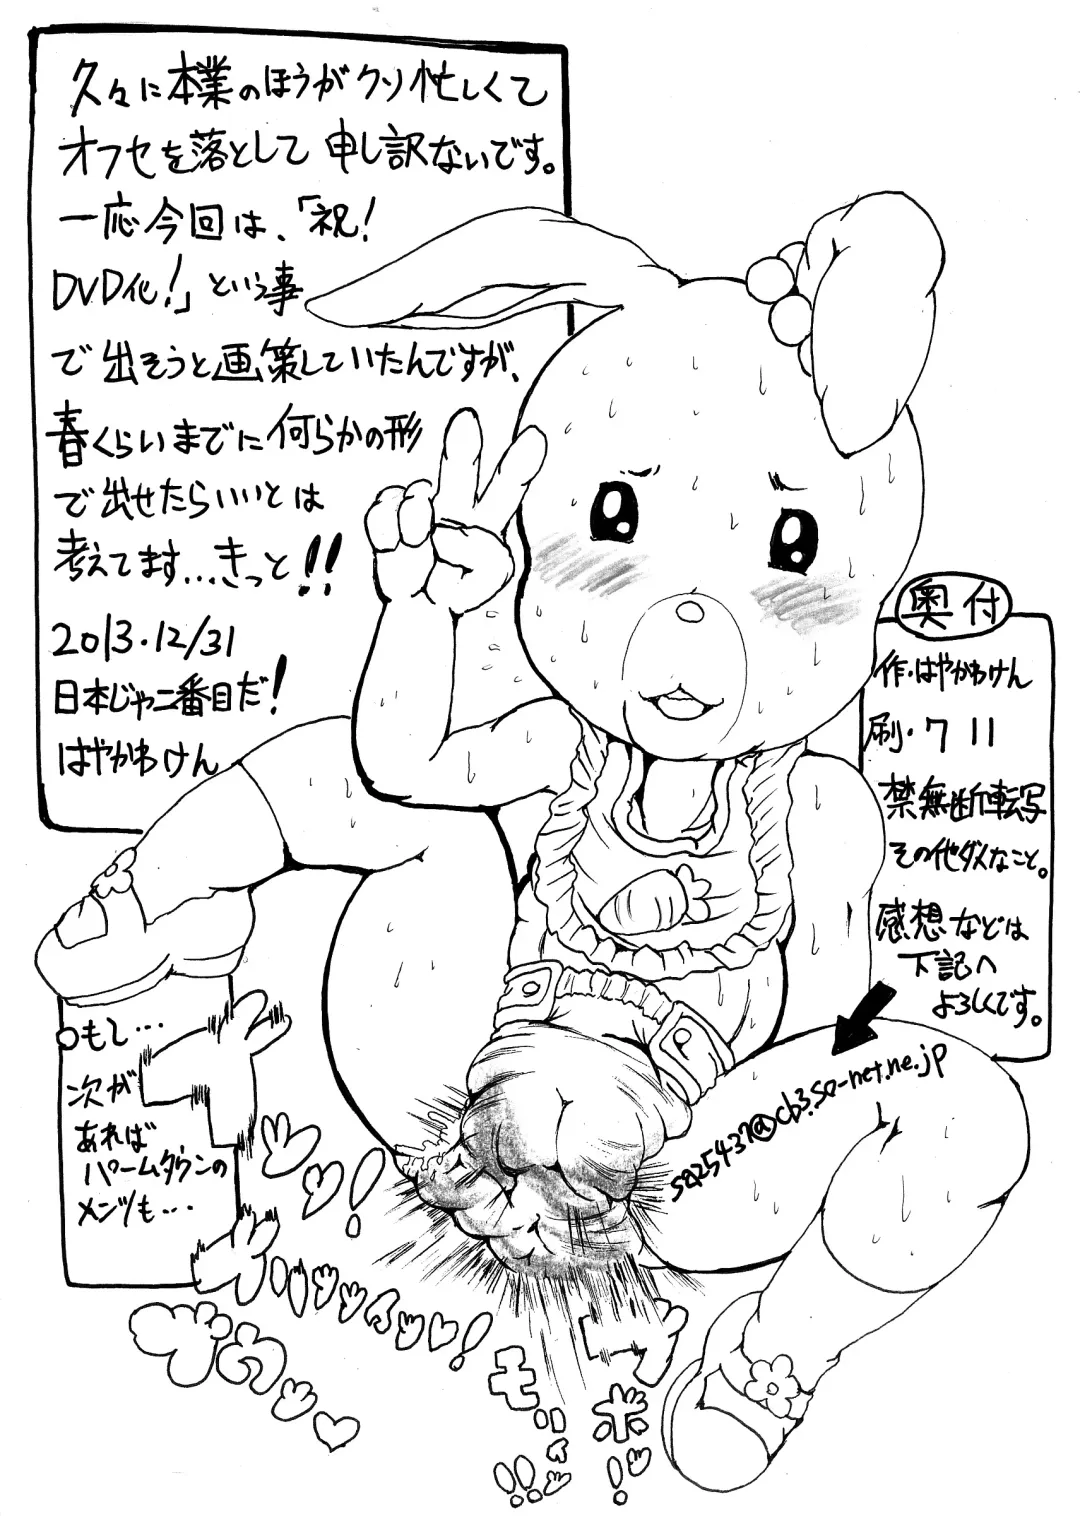 久々に本業のほうがクソ忙しくて
オフセを落として申し訳ないです。
一応今回は、「祝！
DVD化！」という事
で出そうと画策していたんですが、
春くらいまでに何らかの形
で出せたらいいとは
考えてます...きっと!!
2013.12/31
日本じゃ二番目だ！
はやかわけん
奥付
作・はやかわけん
刷・711
禁無断転写
その他ダメなこと。
感想などは
下記へ
よろしくです。
sa25437@cb3.so-net.ne.jp
もし...
次が
あれば
パームタウンの
メンツも...